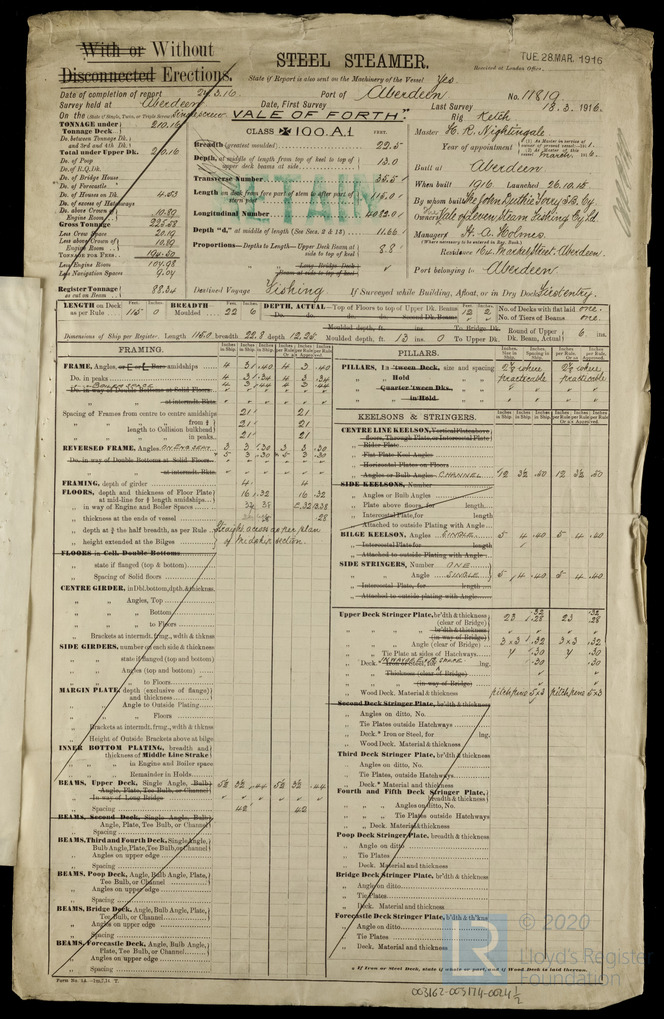 With or Without
Disconnected Erections.
STEEL STEAMER.
TUE. 28 MAR. 1916
Received at London Office
State if Report is also sent on the Machinery of the Vessel Yes
Date of completion of report 24.3.16. Port of Aberdeen No. 11819
Survey held at Aberdeen Date, First Survey Last Survey 18.3.1916.
On the (State if Single, Twin, or Triple Screw) Singlescrew "VALE OF FORTH." Rig Ketch
TONNAGE under Tonnage Deck 210.16
Do. between Tonnage Dk. and 3rd and 4th Dk.
Total under Upper Dk. 210.16
Do. of Poop
Do. of R.Q.Dk.
Do. of Bridge House
Do. of Forecastle
Do. of Houses on Dk. 4.53
Do. of excess of Hatchways
Do. above Crown of Engine Room 10.89
Gross Tonnage 225.58
Less Crew Space 20.19
Less above Crown of Engine Room 10.89
TONNAGE FOR FEES 194.50
Less Engine Room 104.98
Less Navigation Spaces 9.04
Register Tonnage as cut on Beam 88.34
CLASS ✠ 100.A1 FEET.
Breadth (greatest moulded) 22.5
Depth, at middle of length from top of keel to top of upper deck beams at side 13.0
Transverse Number 35.5
Length on deck from fore part of stem to after part of stern post 115.0
Longitudinal Number 4082.0
Depth "d," at middle of length (See Secs. 2 & 13) 11.66
Proportions—Depths to Length—Upper Deck Beam at side to top of keel 8.8
Long Bridge Deck Beam at side to top of keel
Destined Voyage Fishing. If Surveyed while Building, Afloat, or in Dry Dock
Master H. R. Nightingale
Year of appointment
Built at Aberdeen
When built 1916 Launched 26.10.15
By whom built The John Duthie Torry S.B. Coy
Owners Vale of Leven Steam Fishing Coy Ld
Managers H. A. Holmes.
(Where necessary to be entered in Reg. Book.)
Residence 164 Market Street, Aberdeen.
Port belonging to Aberdeen.
LENGTH on Deck as per Rule 115 0 BREADTH—Moulded 22 6 DEPTH, ACTUAL—Top of Floors to top of Upper Dk. Beams 12 2 No. of Decks with flat laid one.
Do. do. Second Dk. Beams No. of Tiers of Beams one.
Dimensions of Ship per Register, Length 115.0 breadth 22.8 depth 12.25 Moulded depth, ft. 13 ins. 0 To Upper Dk. Round of Upper Dk. Beam, Actual 6 ins.
FRAMING.
FRAME, Angles, or E or L Bars amidships 4 3 .40 4 3 .40
Do. in peaks 4 3 .34 4 3 .34
Do. in way of Double Bottoms at Solid Floors
at intermdt. Bkts.
Spacing of Frames from centre to centre amidships 21" 21
length to Collision bulkhead 21" 21
in peaks 21" 21
REVERSED FRAME, Angles 3 3 .30 3 3 .30
Do. in way of Double Bottoms at Solid Floors
at intermdt. Bkts.
FRAMING, depth of girder 4 4
FLOORS, depth and thickness of Floor Plate at mid-line for ½ length amidships 16 .32 16 .32
in way of Engine and Boiler Spaces
thickness at the ends of vessel .28
depth at ¾ the half breadth, as per Rule Straight across as per plan
height extended at the Bilges of Midship section.
FLOORS in Cell. Double Bottoms
state if flanged (top & bottom)
Spacing of Solid floors
CENTRE GIRDER, in Dbl. bottom, dpth. & thicknss.
Angles, Top
Bottom
to Floors
Brackets at intermdt. frmg., wdth & thknss
SIDE GIRDERS, number on each side & thickness
state if flanged (top and bottom)
Angles (top and bottom)
to Floors
MARGIN PLATE, depth (exclusive of flange) and thickness
Angle to Outside Plating
Floors
Brackets at intermdt. frmg., wdth & thknss
Height of Outside Brackets above at bilge
INNER BOTTOM PLATING, breadth and thickness of Middle Line Strake
in Engine and Boiler space
Remainder in Holds
BEAMS, Upper Deck, Single Angle, Bulb Angle, Plate, Tee Bulb, or Channel 5½ 3½ .44 5½ 3½ .44
In way of Long Bridge
Spacing 42" 42
BEAMS, Second Deck, Single Angle, Bulb Angle, Plate, Tee Bulb, or Channel
Spacing
BEAMS, Third and Fourth Deck, Single Angle, Bulb Angle, Plate, Tee Bulb, or Channel
Angles on upper edge
Spacing
BEAMS, Poop Deck, Bulb Angle, Plate, Tee Bulb, or Channel
Angles on upper edge
Spacing
BEAMS, Bridge Deck, Angle, Bulb Angle, Plate, Tee Bulb, or Channel
Angles on upper edge
Spacing
BEAMS, Forecastle Deck, Angle, Bulb Angle, Plate, Tee Bulb, or Channel
Angles on upper edge
Spacing
PILLARS.
PILLARS, In 'tween Deck, size and spacing 2½ where 2½ where
Hold practicable practicable
Quarter 'tween Dks.,
in Hold
KEELSONS & STRINGERS.
CENTRE LINE KEELSON, Vertical Plate above floors, Through Plate, or Intercostal Plate
Rider Plate
Flat Plate Keel Angles
Horizontal Plates on Floors
Angles or Bulb Angles CHANNEL 12 3½ .50 12 3½ .50
SIDE KEELSONS, Number
Angles or Bulb Angles
Plate above floors, for length
Intercostal Plate, for length
Attached to outside Plating with Angle
BILGE KEELSON, Angles SINGLE 5 4 .40 5 4 .40
Intercostal Plate for length
Attached to outside Plating with Angle
SIDE STRINGERS, Number ONE
Angle SINGLE 5 4 .40 5 4 .40
Intercostal Plate, for length
Attached to outside plating with Angle
Upper Deck Stringer Plate, br'dth & thickness (clear of Bridge) 23 .32 .28 23 .32 .28
br'dth & thickness (in way of Bridge)
Angle (clear of Bridge) 3 x 3 .32 3 x 3 .32
Tie Plate at sides of Hatchways .30 .30
Deck .30 .30
Thickness (clear of Bridge)
(in way of Bridge)
Wood Deck, Material & thickness pitchpine 5x3 pitchpine 5x3
Second Deck Stringer Plate, br'dth & thickness
Angles on ditto, No.
Tie Plates outside Hatchways
Deck.* Iron or Steel, for lng.
Wood Deck. Material & thickness
Third Deck Stringer Plate, br'dth & thickness
Angles on ditto, No.
Tie Plates, outside Hatchways
Deck.* Material and thickness
Fourth and Fifth Deck Stringer Plate, breadth & thickness
Angles on ditto, No.
Tie Plates outside Hatchways
Deck. Material & thickness
Poop Deck Stringer Plate, breadth & thickness
Angle on ditto
Tie Plates
Deck. Material and thickness
Bridge Deck Stringer Plate, br'dth & thickness
Angle on ditto
Tie Plates
Deck. Material and thickness
Forecastle Deck Stringer Plate, b'dth & th'knss
Angle on ditto
Tie Plates
Deck. Material and thickness
* If Iron or Steel Deck, state if whole or part, and if Wood Deck is laid thereon.
© 2020
LR Lloyd's Register
Foundation
003162-003174-0024½